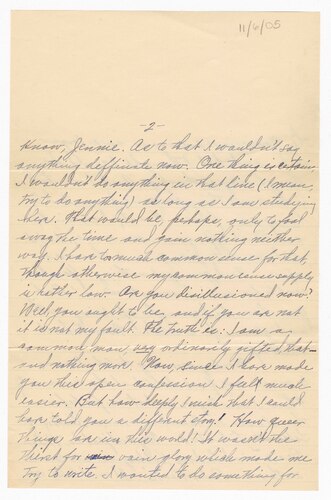 11/6/05
-2-
Know, Jennie. As to that I wouldn't say
anything deffinate now. One thing is certain,
I wouldn't do anything in that line (I mean,
try to do anything) as long as I am studying
here. That would be, perhaps, only to fool
away the time and gain nothing neither
way. I have too much common sense for that,
though otherwise my common sense supply
is rather low. Are you disillusioned now?
Well, you ought to be, and if you are not
it is not my fault. The truth is: I am a
common man, very ordinarily gifted, that
and nothing more. Now since I have made
you this open confession I feel much
easier. But how deeply I wish that I could
have told you a different story! How queer
things are in this world! It wasn't the
thirst for vain glory which made me
try to write. I wanted to do something for